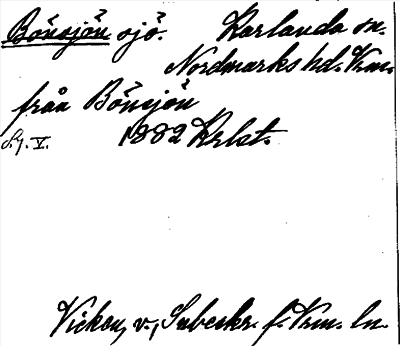 Bönsjön sjö. Karlanda sn.
Nordmarks hd. Vrm.
från Bönsjön
S.g. V. 1882 Krlst.
Vicken, v., Inbeskr. f. Vrm. ln.